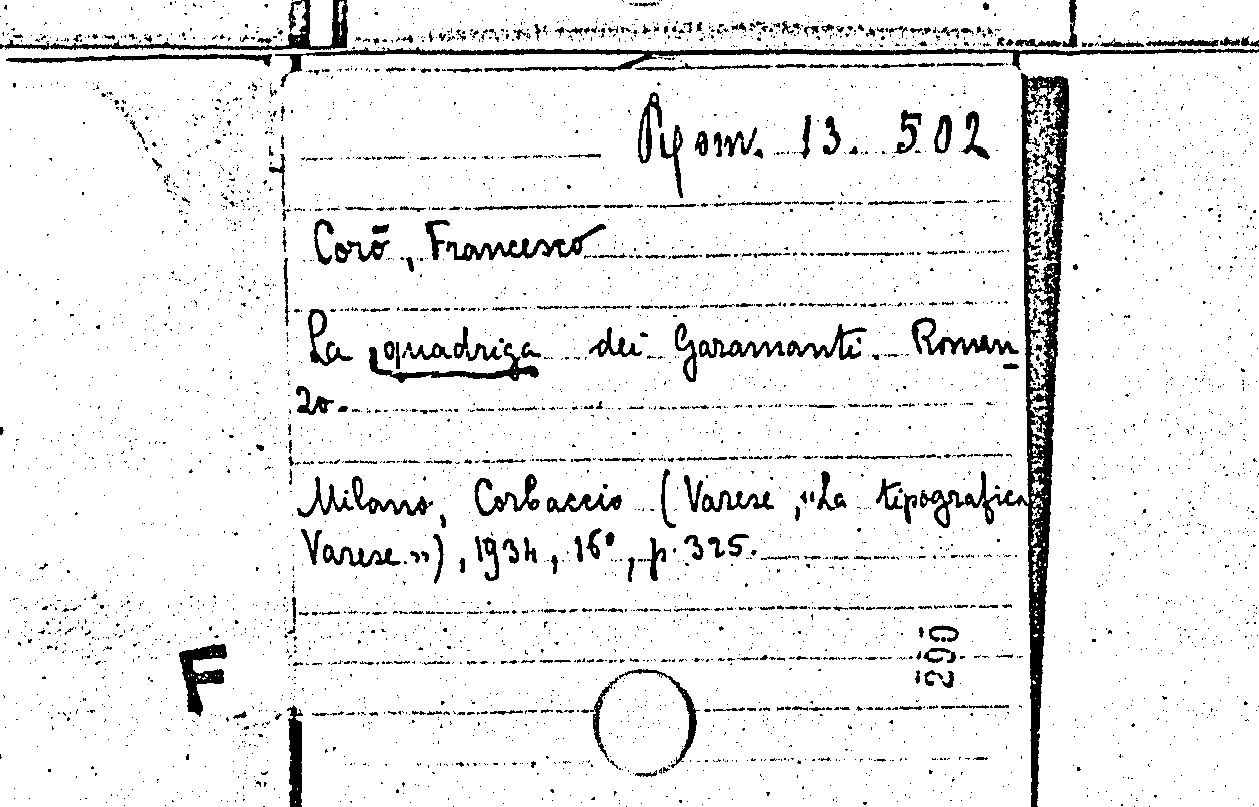 Rom. 13. 502
Corō, Francesco
La quadriga dei Garamanti. Roman
zo.
Milano, Corbaccio (Varese, "La tipografica
Varese"), 1934, 16°, p. 325.
290
F